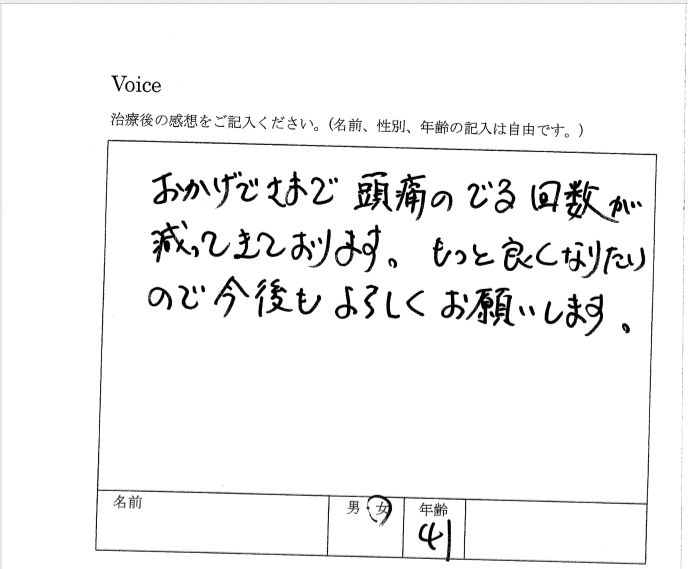 Voice
治療後の感想をご記入ください。(名前、性別、年齢の記入は自由です。)
おかげでさまで 頭痛のでる回数が
減ってきております。もっと良くなりたい
ので今後もよろしくお願いします。
名前 男・女 年齢
41